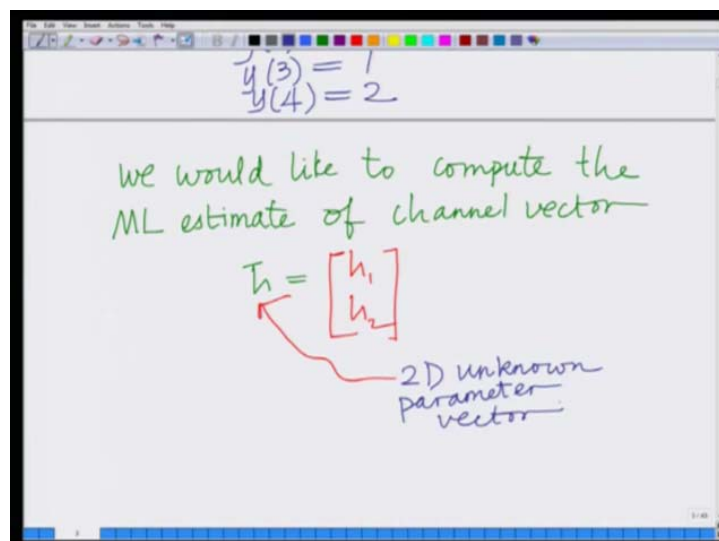 File Edit View Insert Actions Tools Help
y(3) = 1
y(4) = 2
we would like to compute the
ML estimate of channel vector
h̄ = [h₁
h₂]
2D unknown
parameter
vector